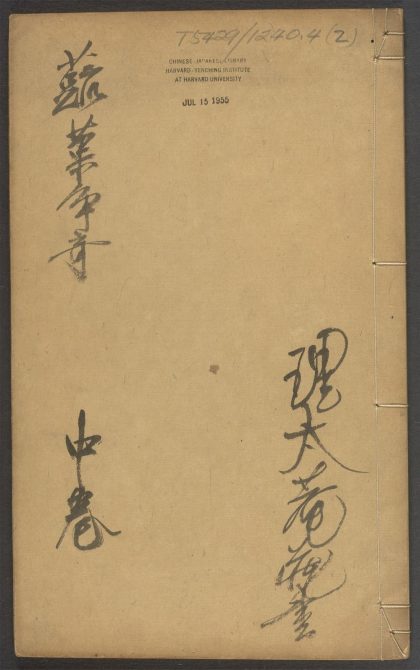 T5429/1240.4(2)
CHINESE-JAPANESE LIBRARY
HARVARD-YENCHING INSTITUTE
AT HARVARD UNIVERSITY
JUL 15 1955
蔬菓爭奇
中卷
理大菴藏書